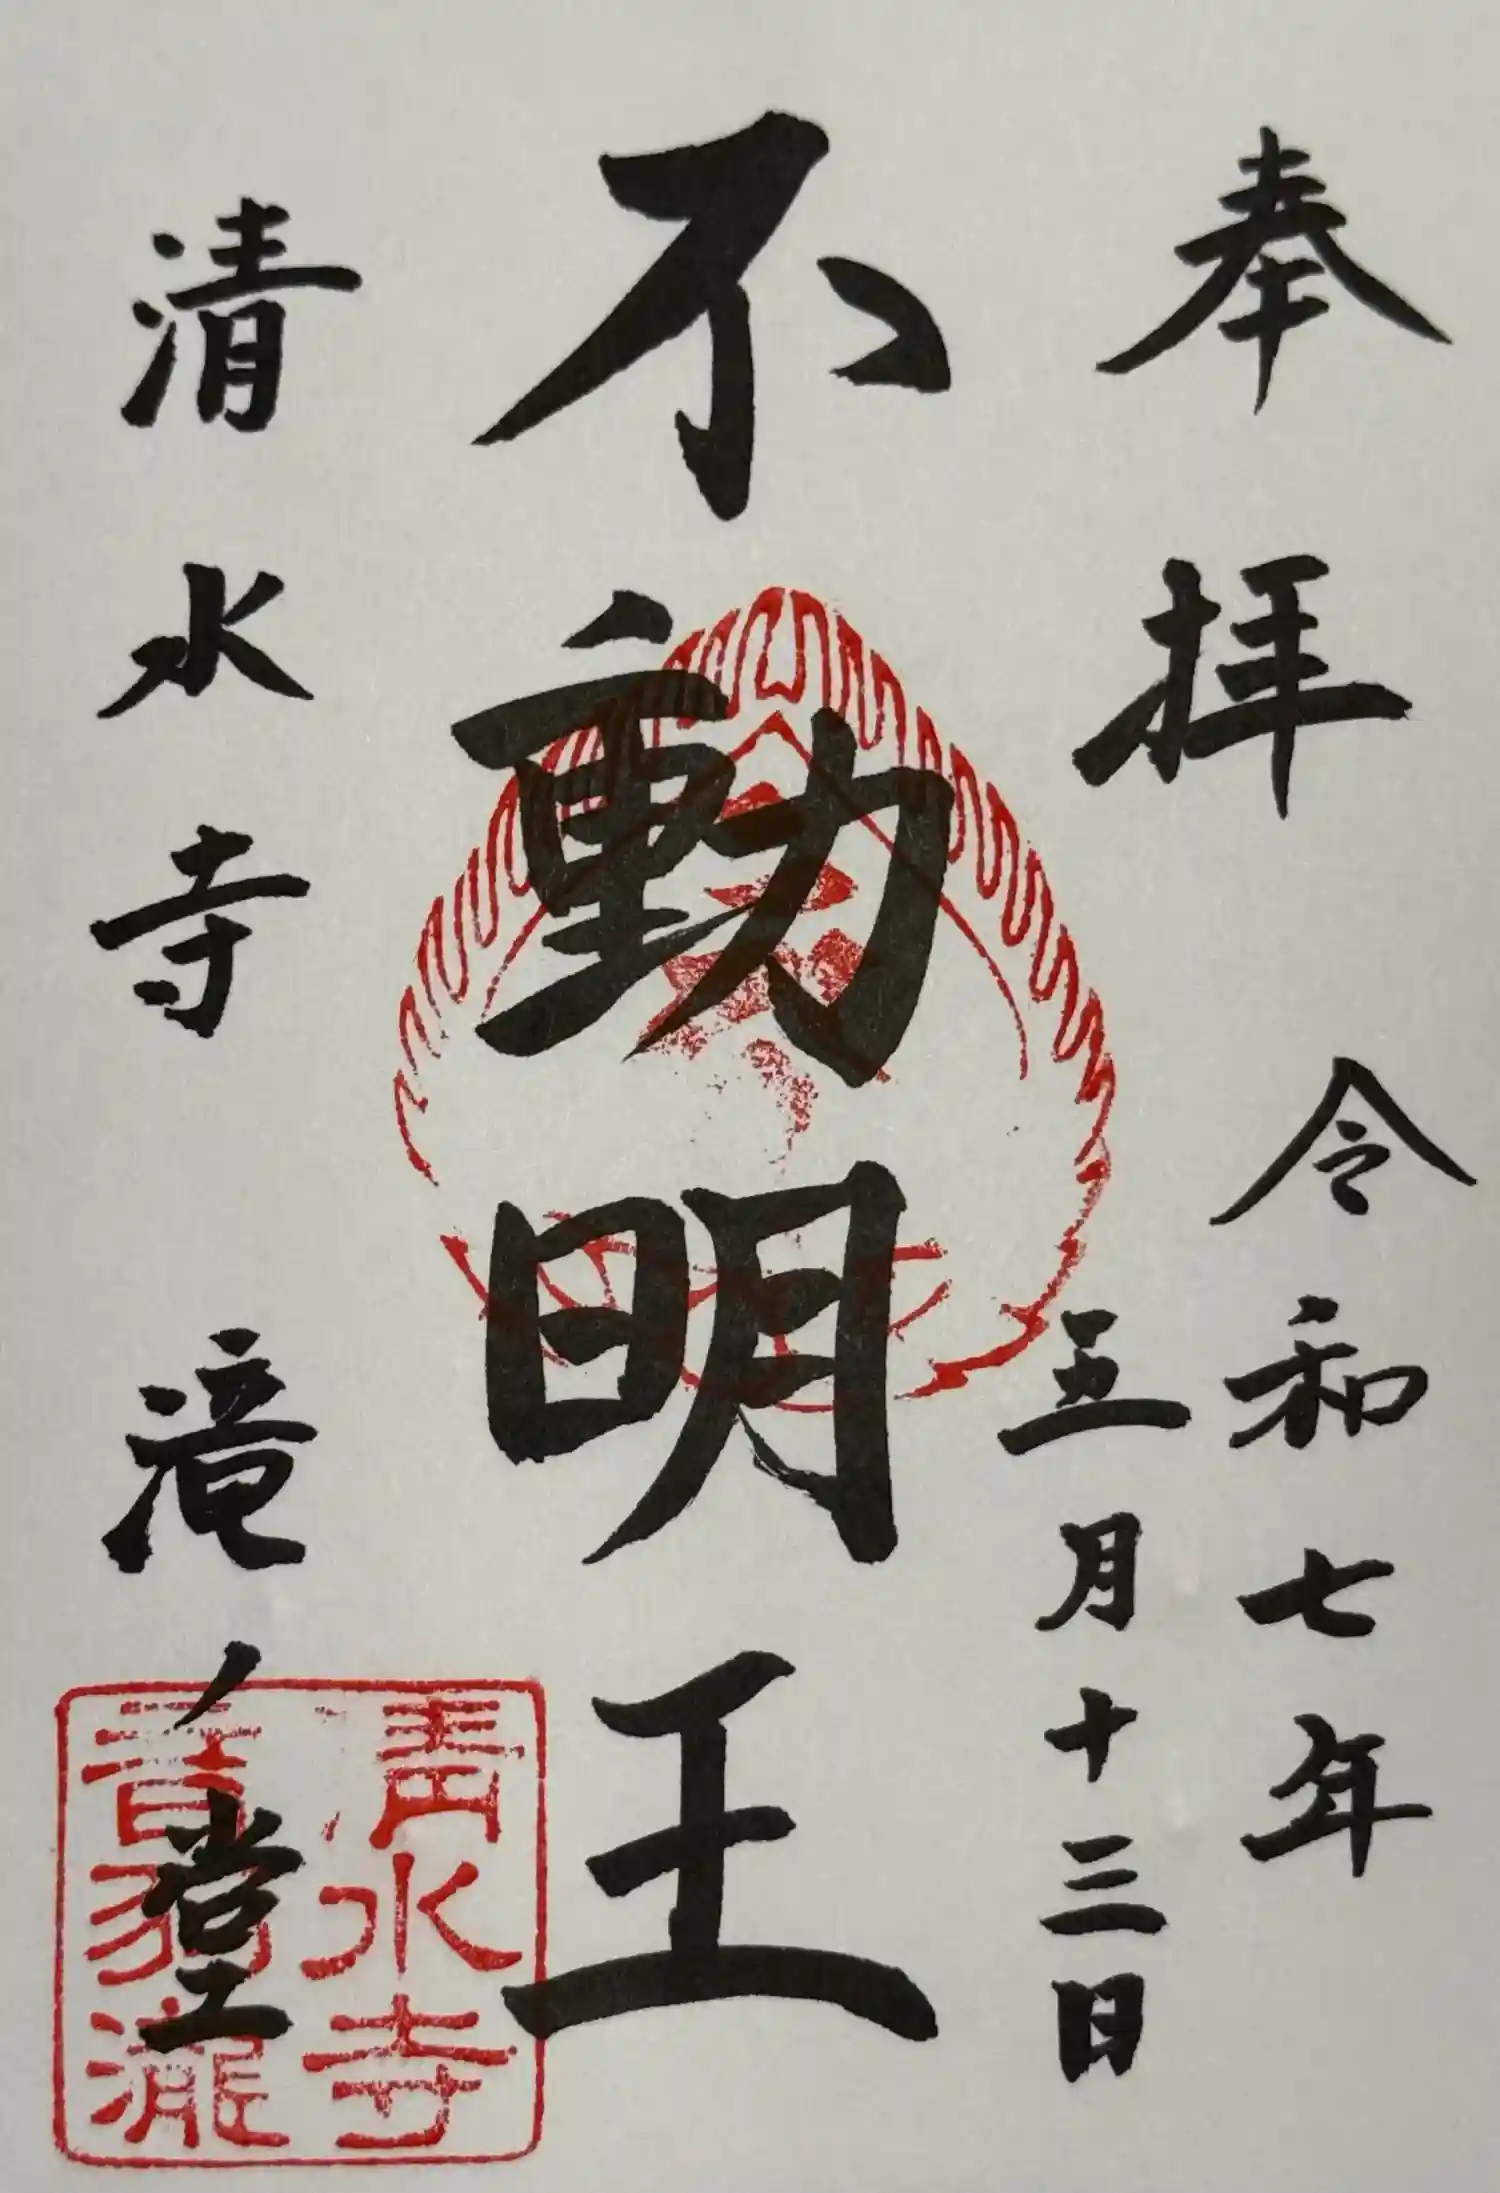 奉拝
令和七年
五月十三日
不動明王
清水寺
滝ノ堂
清水寺
音羽瀧